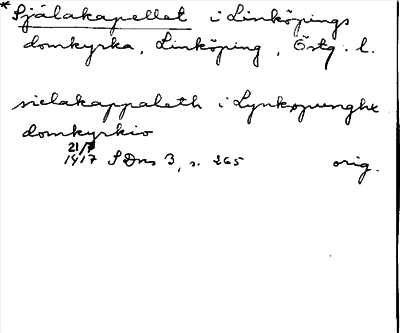 *Själakapellet i Linköpings
domkyrka, Linköping, Östg. l.
sielakappaleth i Lynkøpunghx
domkyrkio
21/7
1417 SDns 3, s. 265 orig.